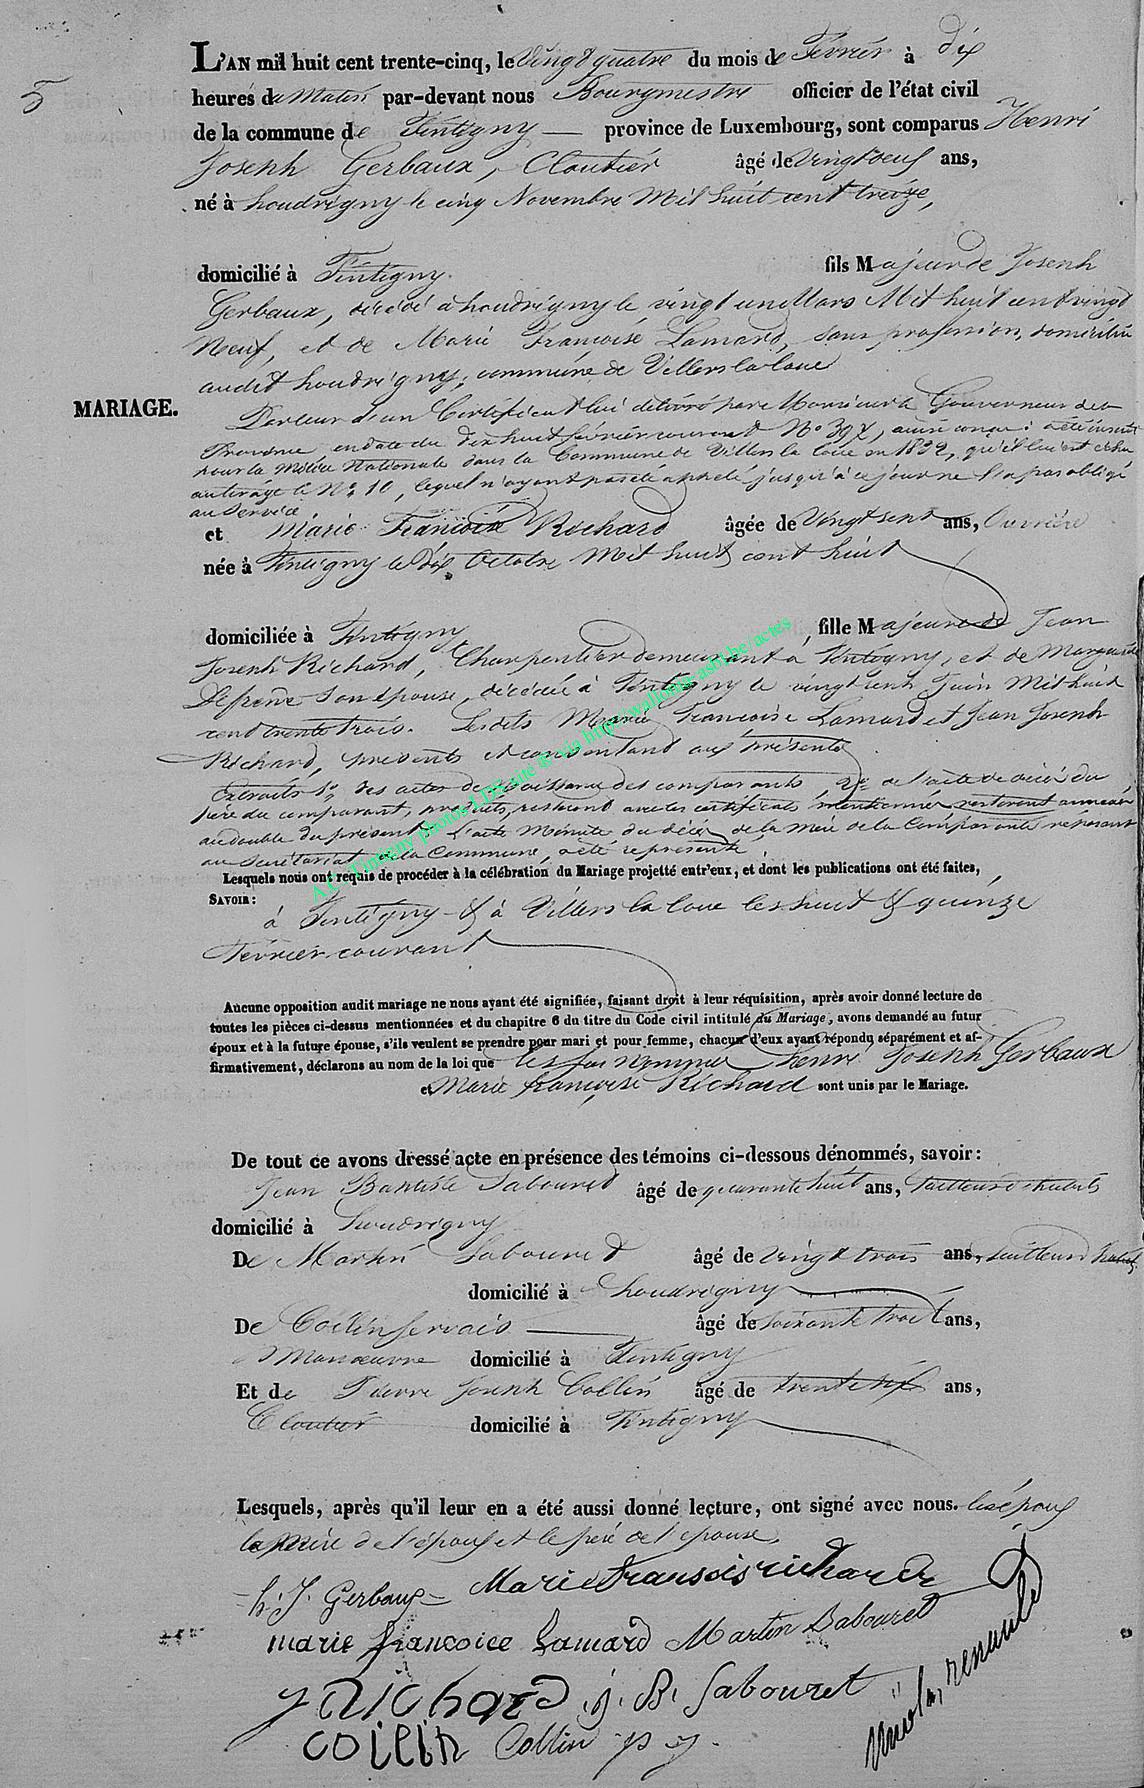 5
L'AN mil huit cent trente-cinq, le Vingt quatre du mois de Février à dix
heures du Matin par-devant nous Bourgmestre officier de l'état civil
de la commune de Tintigny province de Luxembourg, sont comparus Henri
Joseph Gerbaux, Cloutier âgé de Vingt oeuf ans,
né à houdrigny le cinq Novembre Mil huit cent treize,
domicilié à Tintigny. fils Majeur de Joseph
Gerbaux, décédé à houdrigny le vingt un Mars Mil huit cent vingt
Neuf, et de Marie Françoise Lamard, sans profession, domiciliée
audit houdrigny, commune de Villers la loue
MARIAGE.
Porteur d'un Certificat lui délivré par Monsieur le Gouverneur de la
Province, en date du dix huit février courant No 397, ainsi conçu : a été inscrit
pour la Milice Nationale dans la Commune de Villers la loue en 1832, qu'il lui est échu
au tirage le No 10, lequel n'ayant pas été appelé jusqu'à ce jour ne l'a pas obligé
au Service
et Marie Françoise Richard âgée de Vingt sept ans, Ouvrière
née à Tintigny le dix Octobre Mil huit cent huit
domiciliée à Tintigny fille Majeure de Jean
Joseph Richard, Charpentier demeurant à Tintigny, et de Marguerite
son épouse, décédée à Tintigny le vingt un Juin Mil huit
cent trente trois. Lesdits Marie Françoise Lamard et Jean Joseph
Richard, présents et consentant aux présentes
Extraits 1o des actes de Naissance des comparants 2o de l'acte de décès du
père du comparant, produits, resteront avec les certificats mentionnés annexés
au double du présent. L'acte Minute du décès de la mère de la Comparante reposant
au Secrétariat de la Commune, a été représenté
A.C. Tintigny photos LDS site & via http://wallonia-asbl.be/actes
Lesquels nous ont requis de procéder à la célébration du Mariage projetté entr'eux, et dont les publications ont été faites,
SAVOIR :
à Tintigny & à Villers la loue les huit & quinze
Février courant
Aucune opposition audit mariage ne nous ayant été signifiée, faisant droit à leur réquisition, après avoir donné lecture de
toutes les pièces ci-dessus mentionnées et du chapitre 6 du titre du Code civil intitulé du Mariage, avons demandé au futur
époux et à la future épouse, s'ils veulent se prendre pour mari et pour femme, chacun d'eux ayant répondu séparément et af-
firmativement, déclarons au nom de la loi que les sus nommés Henri Joseph Gerbaux
et Marie françoise Richard sont unis par le Mariage.
De tout ce avons dressé acte en présence des témoins ci-dessous dénommés, savoir :
Jean Baptiste Sabouret âgé de quarante huit ans, tailleur d'habits
domicilié à houdrigny
De Martin Sabouret âgé de vingt trois ans, tailleur d'habits
domicilié à houdrigny
De Collin Servais âgé de soixante trois ans,
Manoeuvre domicilié à Tintigny
Et de Pierre Joseph Collin âgé de trente six ans,
Cloutier domicilié à Tintigny
Lesquels, après qu'il leur en a été aussi donné lecture, ont signé avec nous. les époux
la Mère de l'époux et le père de l'épouse.
h. J. Gerbaux Marie fransois richard
marie francoice Lamard Martin Sabouret
J J Richard j. B. Sabouret
collin Collin p j.
Nicolas renauld